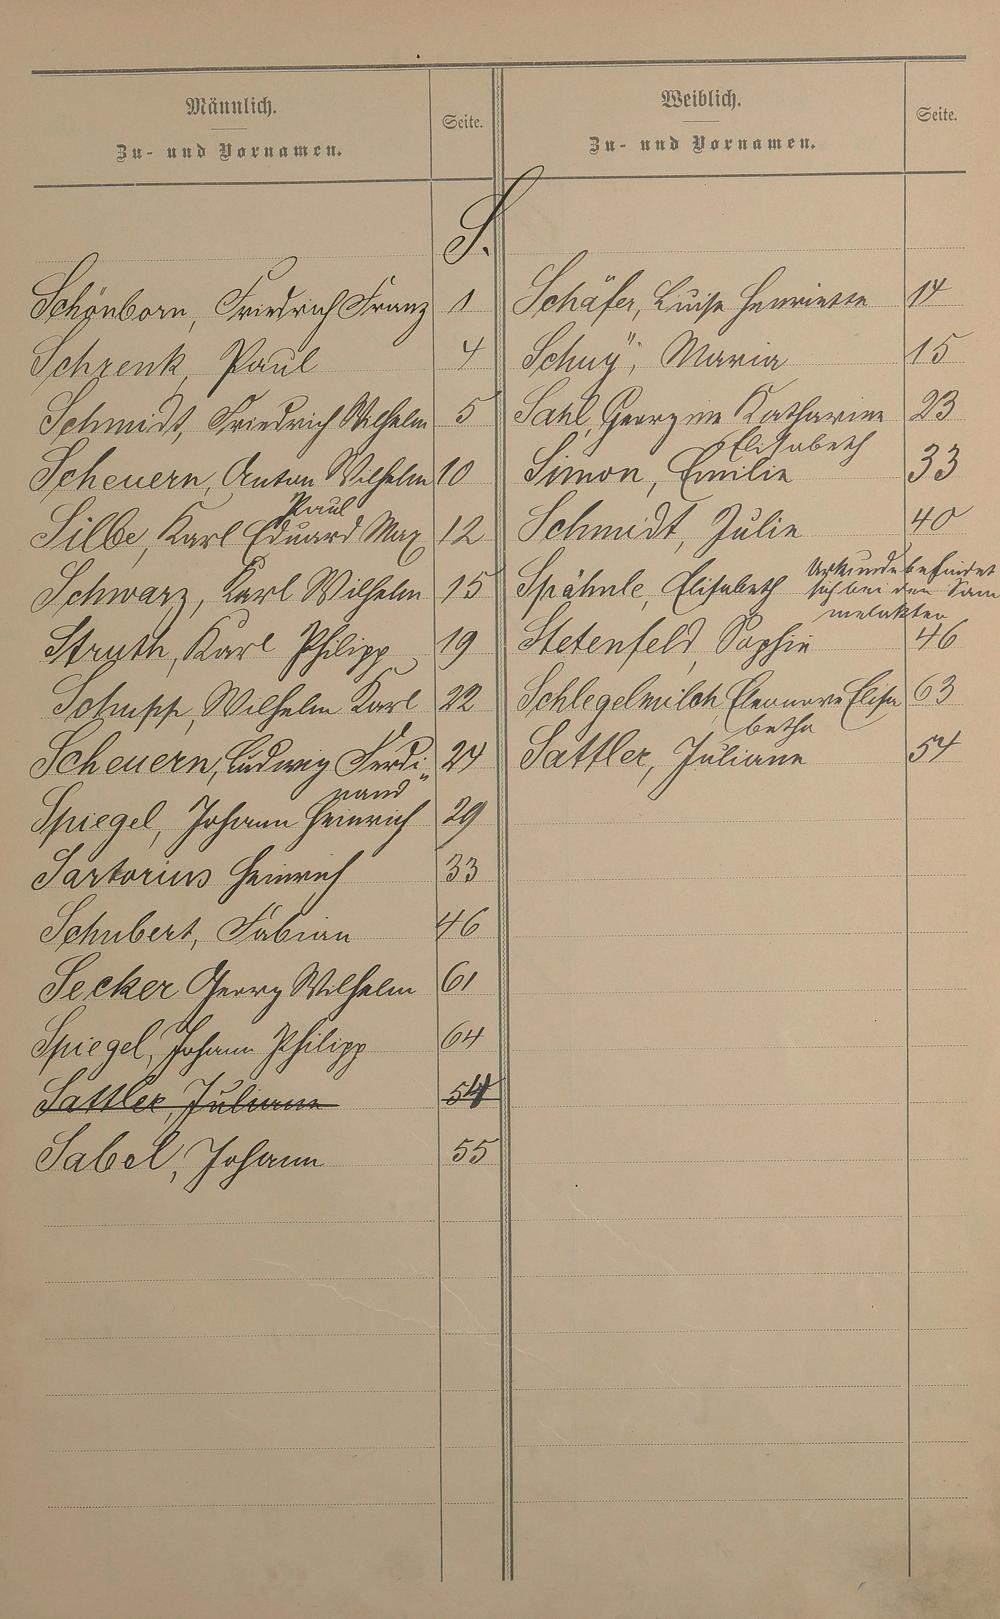 Männlich.
Zu- und Vornamen.
Seite.
Weiblich.
Zu- und Vornamen.
Seite.
S.
Schönborn, Friedrich Franz 1
Schrenk, Paul 4
Schmidt, Friedrich Wilhelm 5
Scheuern, Anton Wilhelm 10
Paul
Silbe, Karl Eduard Max 12
Schwarz, Karl Wilhelm 15
Struth, Karl Philipp 19
Schupp, Wilhelm Karl 22
Scheuern, Ludwig Ferdi„ 24
nand
Spiegel, Johann Heinrich 29
Sartorius Heinrich 33
Schubert, Fabian 46
Secker Georg Wilhelm 61
Spiegel, Johann Philipp 64
Sattler, Juliane 54
Sabel, Johann 55
Schäfer, Luise Henriette 14
Schuÿ, Maria 15
Sahl, Georgine Katharine 23
Elisabeth
Simon, Emilie 33
Schmidt, Julie 40
Spähnle, Elisabeth Urkunde befindet
sich bei den Sam
melakten
Stetenfeld, Sophie 46
Schlegelmilch, Eleonore Elisa 63
betha
Sattler, Juliane 54